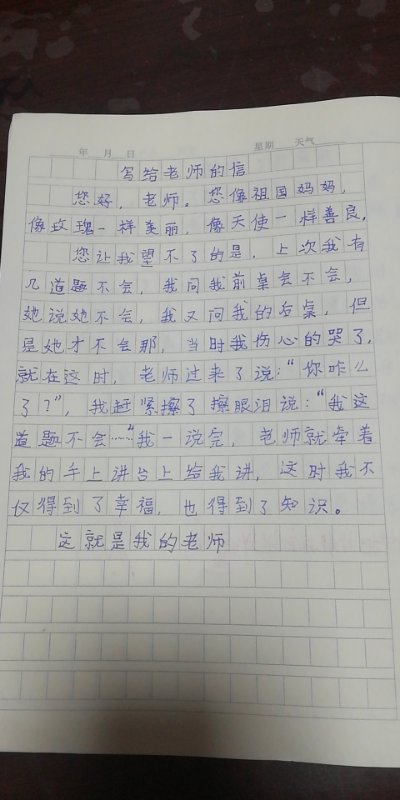 年 月 日 星期 天气
写给老师的信
您好，老师。您像祖国妈妈，
像玫瑰一样美丽，像天使一样善良，
您让我望不了的是，上次我有
几道题不会，我问我前桌会不会，
她说她不会，我又问我的后桌，但
是她才不会那，当时我伤心的哭了，
就在这时，老师过来了说：“你咋么
了？”，我赶紧擦了擦眼泪说：“我这
道题不会……“我一说完，老师就牵着
我的手上讲台上给我讲，这时我不
仅得到了幸福，也得到了知识。
这就是我的老师